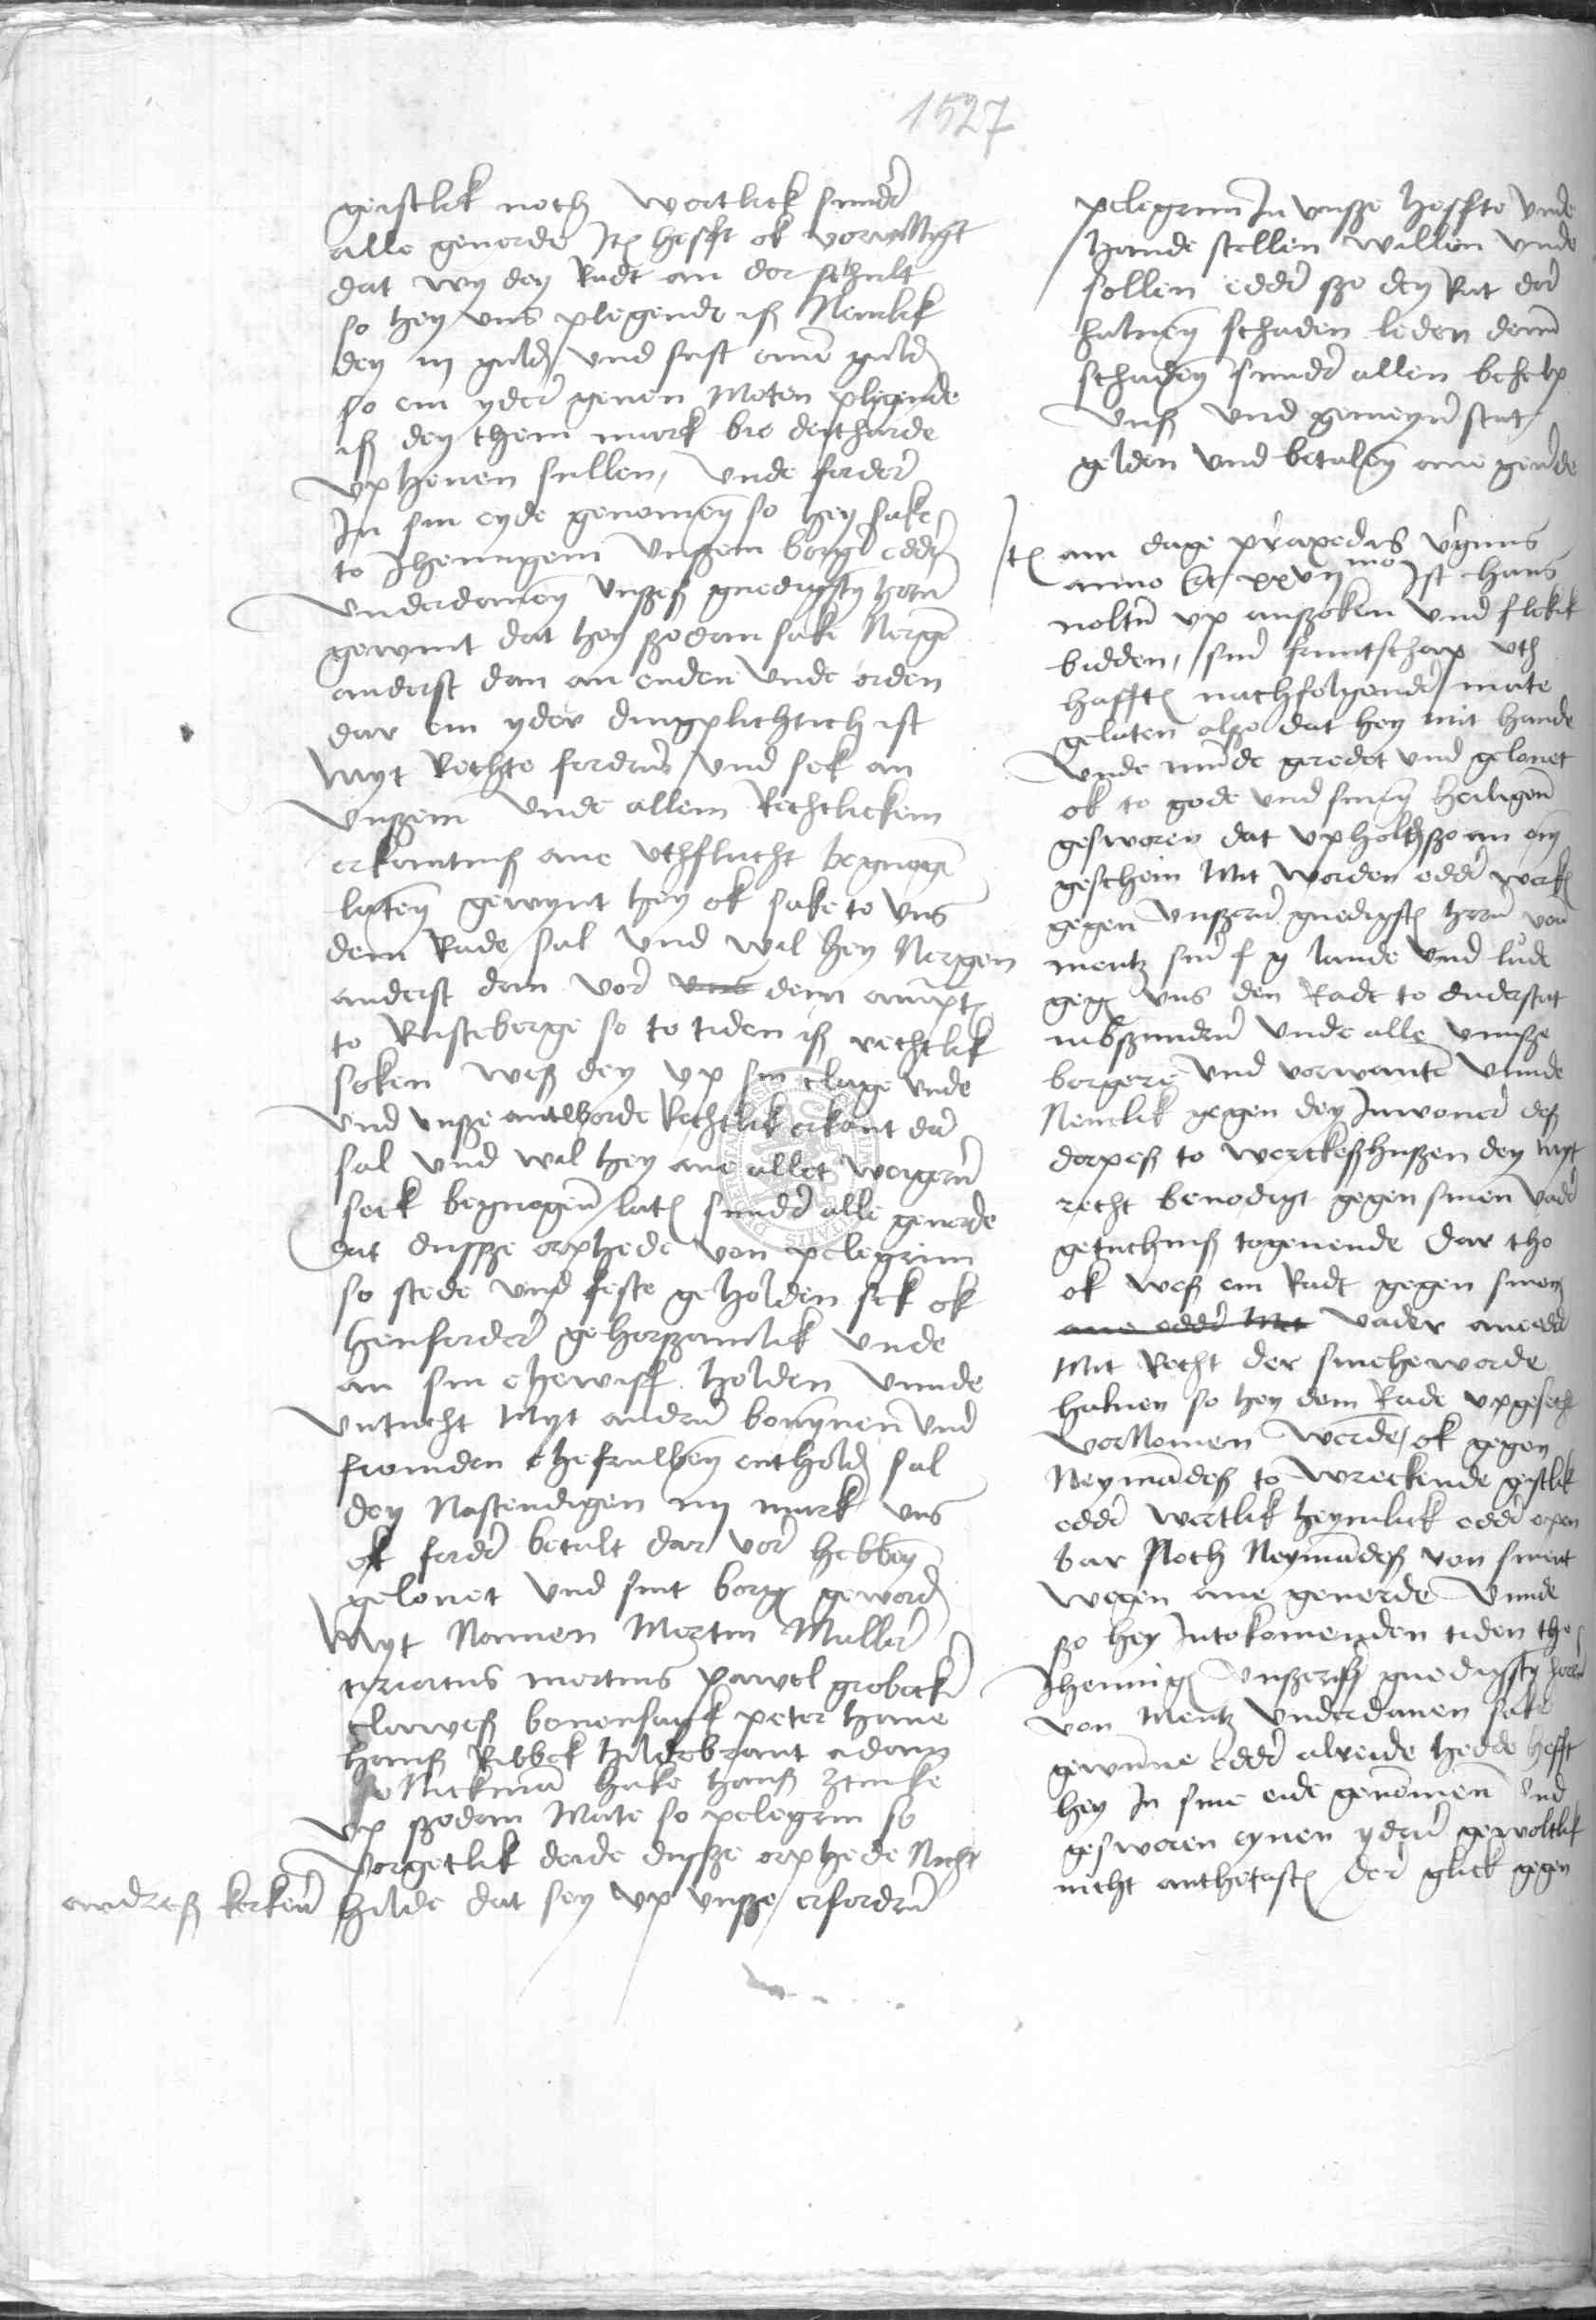 1527
geistlik noch wertlick sunder
alle geuerde Itē hefft ok vorwilligt
dat wy dey Radt an der schult
so hey vns plegende iß Nemlik
dey iij guldē vnd sust eine guldē
so em yder geuen Moten plegende
iß dey them mark bie
vp heuen sullen, vnde forder
In sin eyde genomen so hey sake
to Jhenigem vnßem borger edder
vnderdanen vnßeß gnedigsten hern
gewint dat hey ßodan sake Nergē
anderst dan an enden vnde orden
dar em yder dingplichtich ist
Myt Rechte fordern vnd sek an
vnßem vnde allem Rechtlickem
erkantniß ane vthflucht begnogē
laten gewynt hey ok sake to vns
dem Rade sal vnd wil hey Nergen
anderst dan vor vns dem amptē
to Rusteberge so to tiden iß rechtlik
soken weß dey vp sin clage vnde
vnd vnße antworde Rechtlik erkant der
sal vnd wil hey ane allet weigern
seck begnogen latē sunder alle geuerde
dat dusße orphede von pelegrim
so stede vnd feste geholden sek ok
henforder gehorßamlik vnde
an sin ehewiff holden vnnde
vntucht Myt andern vnd
fromden ehefruwen entholdē sal
dey Nastendigen iiij mark vns
ok forder betalt dar vor hebben
gelouet vnd sint borgē gewordē
Myt Namen Mertin Muller
ciriacus mertins pawel grobecker
clawes bonensack peter hane
hanß Ribbek hildebrant adam
huke hanß
vp ßodan Mate so pelegrim so
sorgetlik deide dusße orphede Nicht
andreß kerkener hilde dat sey vp vnße erfordern
pelegrim In vnsße heffte vnde
hande stellen willen vnde
sollen edder ßo dey Rat der
haluen schaden leden denn
schaden sunder allen behelp
vnß vnd gemeyner stat
gelden vnd betalen ane geuerde
Itē am dage praxedis virginis
anno etc xxvij mo Ist hans
nolten vp anßoken vnd flitik
bidden, siner fruntschap vth
hafftē nachfolgender mate
gelaten also dat hey mit hande
vnde munde geredet vnd gelouet
ok to gode vnd sinen heiligenn
gesworen dat vpholth ßo an em
geschein Mit worden edder werkē
gegen vnßern gnedigstē hern von
mentz siner f g lande vnd lude
gegē vns den Radt to duderstat
inbßundern vnde alle vnnße
borgere vnd vorwanten vnnde
Nemlik gegen dey Inwoner deß
dorpeß to werckeßhußen dey Myt
recht benodigt gegen sinen vader
getuchniß togeuende dar tho
ok weß em Radt gegen sinen
ane edder Mit vader ane edder
Mit Recht der sinehe worde
haluen so hey dem Rade vpgesecht
vorNomen werde, ok gegen
Neymādeß to wreckende gistlik
edder wertlik heymlick edder open
bar Noch Neymādeß von sinent
wegen ane geuerde vnnde
ßo hey Intokomenden tiden tho
Jhenigē vnßerß gnedigsten hern
von Mentz vnderdanen sake
gewunne edder alreide hedde hefft
hey In sine eide genomenn vnd
gesworen eynen ydern gewoltlik
nicht anthetastē der glick gegen